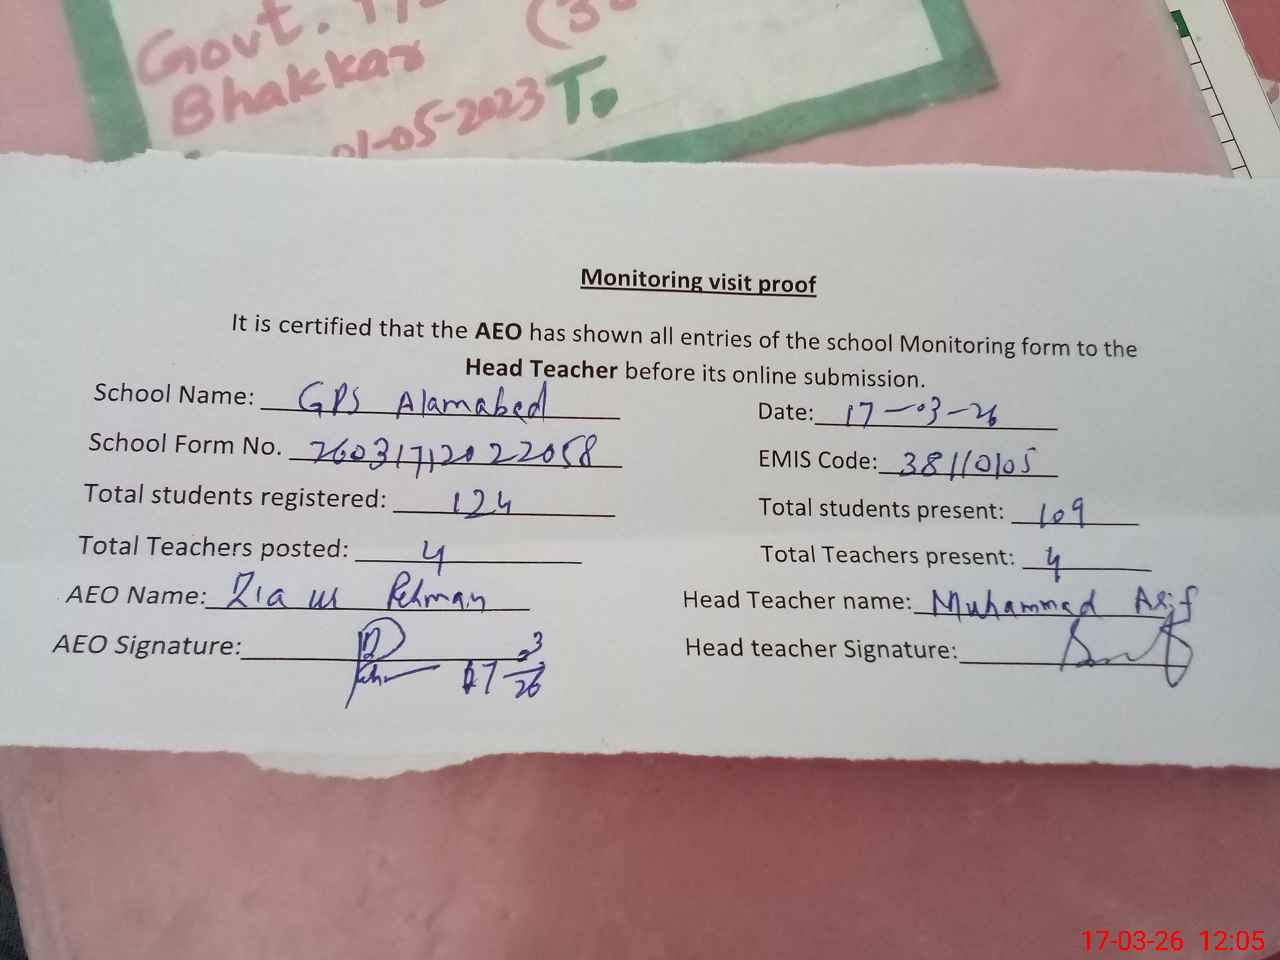 Govt.
Bhakkar
01-05-2023 To
Monitoring visit proof
It is certified that the AEO has shown all entries of the school Monitoring form to the
Head Teacher before its online submission.
School Name: GPS Alamabad Date: 17-03-26
School Form No. 26031712022058 EMIS Code: 38110105
Total students registered: 124 Total students present: 109
Total Teachers posted: 4 Total Teachers present: 4
AEO Name: Zia ur Rehman Head Teacher name: Muhammad Asif
AEO Signature: 17 3/26 Head teacher Signature:
17-03-26 12:05